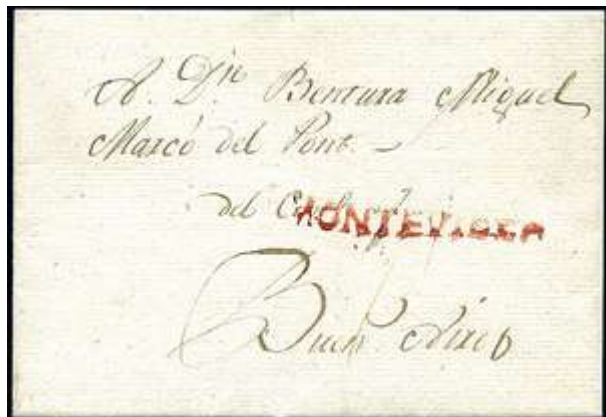 A. Dⁿ Bentura Miguel
Marcó del Pont.
del
MONTEVIDEO
Buenˢ Airˢ